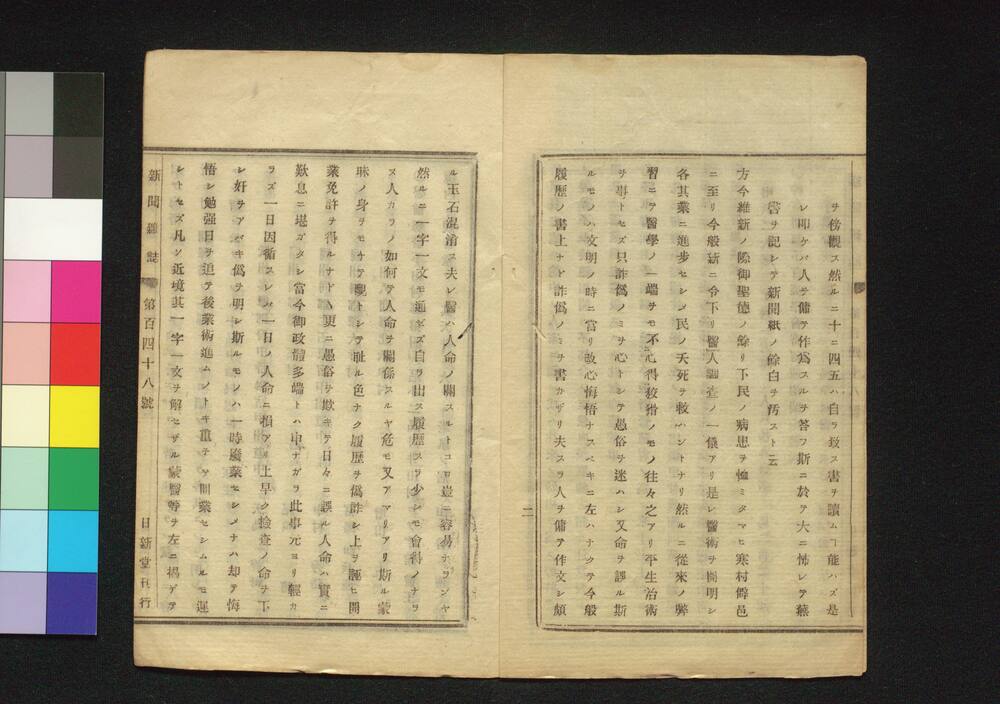 ヲ傍觀ス然ルニ十ニ四五ハ自ラ致ス書ヲ讀ムヿ能ハズ是
レ叩ケバ人ヲ傭テ作爲スルヲ答フ斯ニ於テ大ニ怖レテ蕪
言ヲ記シテ新聞紙ノ餘白ヲ汚スト云
方今維新ノ際御聖德ノ餘リ下民ノ病患ヲ恤ミタマヒ寒村僻邑
ニ至リ今般新ニ令下リ醫人調査ノ一儀アリ是レ醫術ヲ開明シ
各其業ニ進歩セシメ民ノ夭死ヲ救ハントナリ然ルニ從來ノ弊
習ニテ醫學ノ一端サモ不心得狡猾ノモノ往々之アリ平生治術
ヲ事トセズ只詐僞ノミヲ心トシテ愚俗ヲ迷ハシ又命ヲ誤ル斯
ルモノハ文明ノ時ニ當リ改心悔悟ナスベキニ左ハナクテ今般
履歷ノ書上ナド詐僞ノミヲ書カザリ夫スラ人ヲ傭テ作文シ頗
二
ル玉石混淆ス夫レ醫ハ人命ノ關スルトコロ豈ニ容易ナランヤ
然ルニ一字一文モ通ゼズ自ラ出ス履歷スラ少シモ會得ノナラ
ヌ人カラノ如何テ人命ヲ關係スルヤ危モ又アマリアリ斯ル蒙
昧ノ身ヲモケテ靦トシテ耻ル色ナク履歷ヲ僞詐シ上ヲ誣ヒ開
業免許ヲ得ルナド丶更ニ愚俗ヲ欺キテ日々ニ誤ル人命ハ實ニ
歎息ニ堪ガタシ當今御政體多端トハ申ナガラ此事元ヨリ輕カ
ラズ一日因循スレバ一日ノ人命ニ損アリ上早ク撿査ノ命ヲ下
シ奸ヲアバキ僞ヲ明シ斯ルモノハ一時廢業セシメナハ却テ悔
悟シ勉强日ヲ追テ後業術進ムノトキ重テ開業セシムルモ遲
シトセズ凡ソ近境其一字一文ヲ解セザル蒙醫等ヲ左ニ揭ゲテ
新聞雜誌 第百四十八號 日新堂刊行